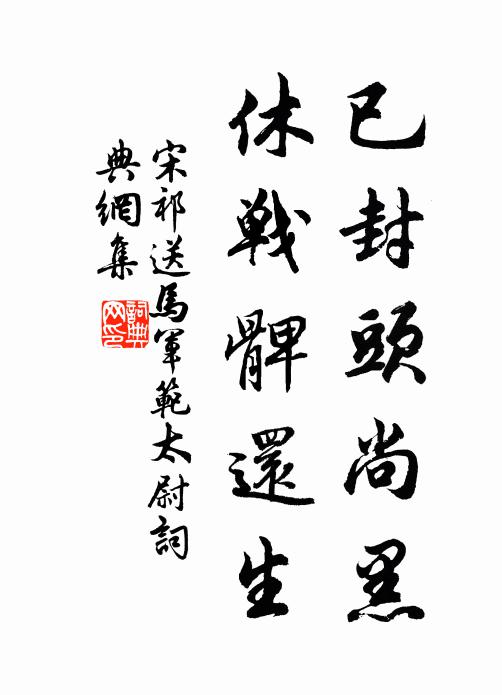 已封頭尚黑
休戰髀還生
宋祁送馬軍範太尉詞
典網集
詞典網印